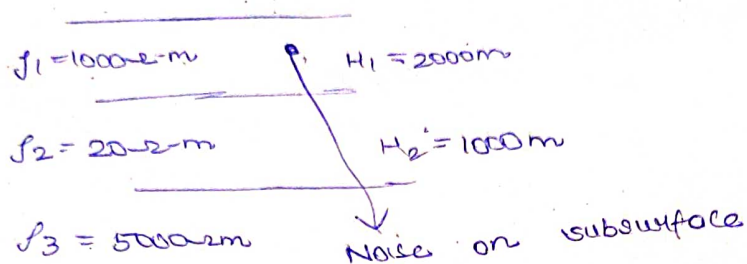 ρ1 = 1000Ω-m H1 = 2000m
ρ2 = 20Ω-m H2 = 1000m
ρ3 = 5000Ωm Noise on subsurface